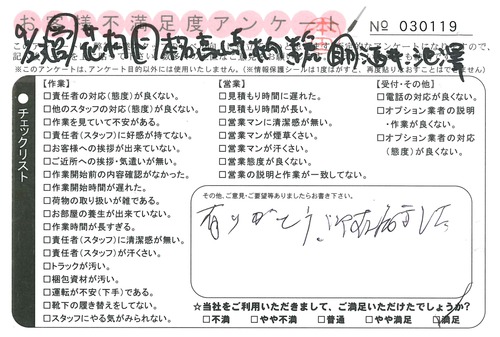 お客様不満足度アンケート
№ 030119
※このアンケートは、アンケート目的以外には使用いたしません。(※情報保護シールは1度はがすと、再度貼りなおすことはできません)
チェックリスト
【作業】
□責任者の対応(態度)が良くない。
□他のスタッフの対応(態度)が良くない。
□作業を見ていて不安がある。
□責任者(スタッフ)に好感が持てない。
□お客様への挨拶が出来ていない。
□ご近所への挨拶・気遣いが無い。
□作業開始前の内容確認がなかった。
□作業開始時間が遅れた。
□荷物の取り扱いが雑である。
□お部屋の養生が出来ていない。
□作業時間が長すぎる。
□責任者(スタッフ)に清潔感が無い。
□責任者(スタッフ)が汗くさい。
□トラックが汚い。
□梱包資材が汚い。
□運転が不安(下手)である。
□靴下の履き替えをしてない。
□スタッフにやる気がみられない。
【営業】
□見積もり時間に遅れた。
□見積もり時間が長い。
□営業マンに清潔感が無い。
□営業マンが煙草くさい。
□営業マンが汗くさい。
□営業態度が良くない。
□営業の説明と作業が一致してない。
【受付・その他】
□電話の対応が良くない。
□オプション業者の説明・作業が良くない。
□オプション業者の対応(態度)が良くない。
その他、ご意見・ご要望等ありましたらお書き下さい。
ありがとう
☆当社をご利用いただきまして、ご満足いただけたでしょうか?
□不満 □やや不満 □普通 □やや満足 □満足